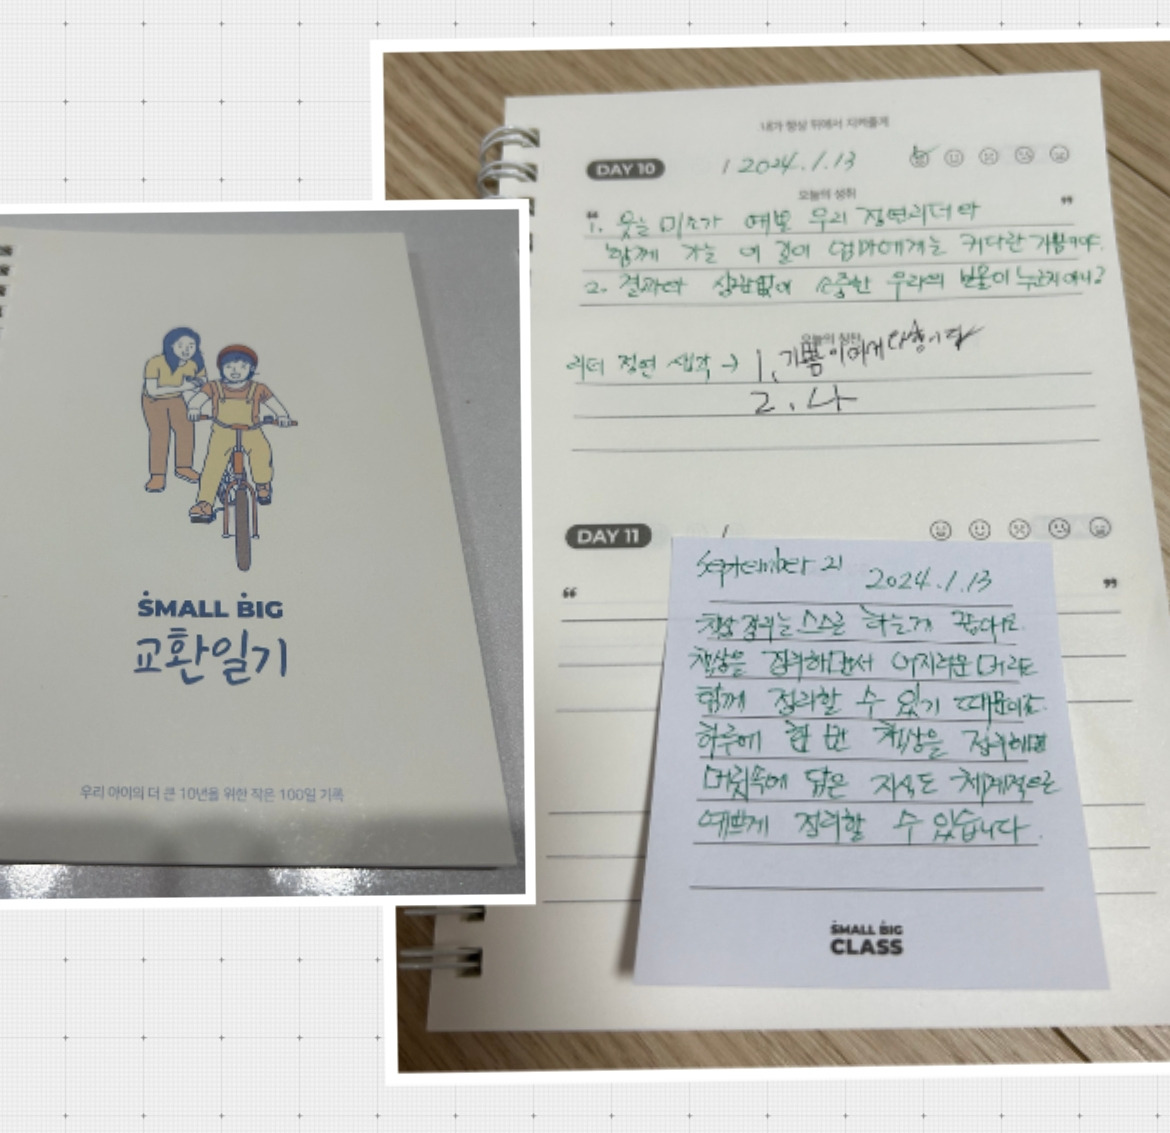 SMALL BIG
교환일기
우리 아이의 더 큰 10년을 위한 작은 100일 기록
내가 항상 뒤에서 지켜줄게
DAY 10
2024.1.13
오늘의 성취
“
”
1. 웃는 미소가 예쁜 우리 정연리더와
함께 가는 이 길이 엄마에게는 커다란 기쁨이야.
2. 결과와 상관없이 소중한 우리의 보물이 누군지 아니?
오늘의 성취
리더 정연 생각 → 1. 기쁨이어서 다행이다
2. 나
DAY 11
“
”
September 21
2024.1.13
책상정리는 스스로 하는게 좋대요.
책상을 정리하면서 어지러운 머리도
함께 정리할 수 있기 때문이죠.
하루에 한 번 책상을 정리하면
머릿속에 담은 지식도 체계적으로
예쁘게 정리할 수 있습니다.
SMALL BIG
CLASS